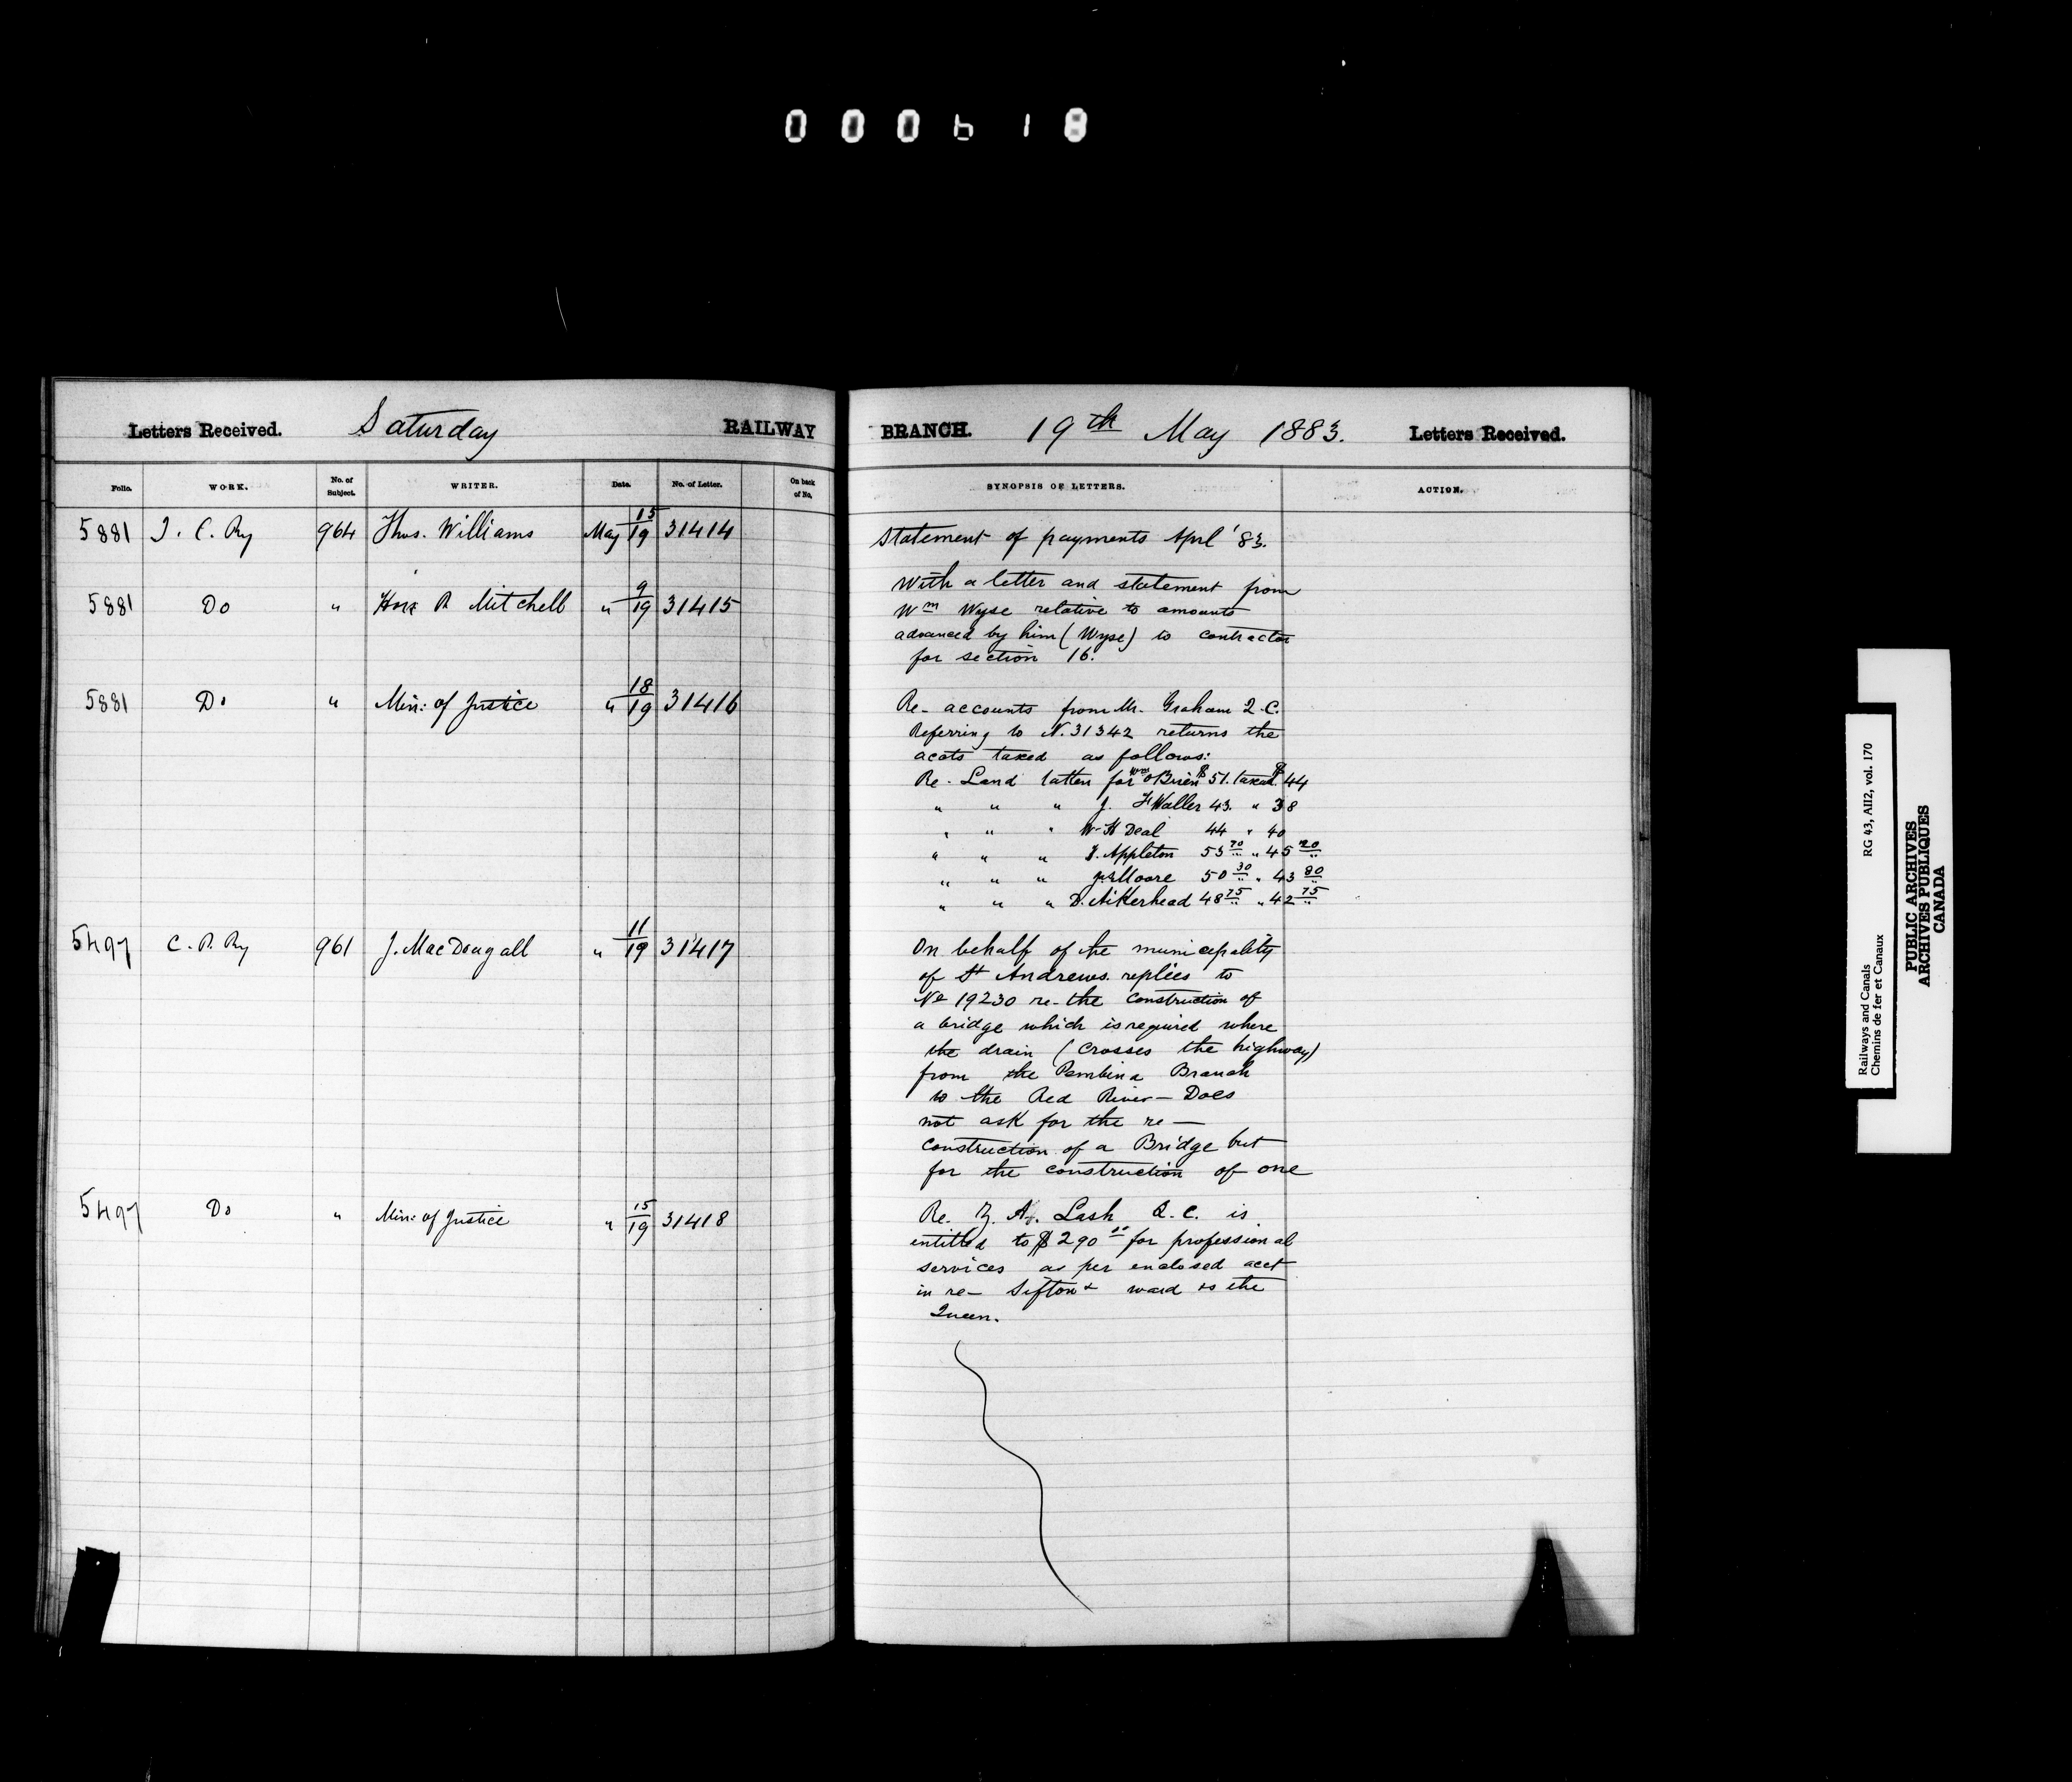 000618
Letters Received. Saturday RAILWAY BRANCH. 19th May 1883. Letters Received.
Folio. WORK. No. of Subject. WRITER. Date. No. of Letter. On back of No. SYNOPSIS OF LETTERS. ACTION.
5881 I. C. Ry 964 Thos. Williams May 15/19 31414 Statement of payments Aprl '83.
5881 Do " Hon P Mitchell " 9/19 31415 With a letter and statement from
Wm Wyse relative to amounts
advanced by him (Wyse) to contractor
for section 16.
5881 Do " Min: of Justice " 18/19 31416 Re- accounts from Mr. Graham Q.C.
Referring to N. 31342 returns the
accts taxed as follows:
Re- Land latten for Wm O'Brien $51. taxed $44
" " " J. H Waller 43. " 38
" " " W H Deal 44 " 40
" " " J. Appleton 53 70 " 45 20
" " " Moore 50 30 " 43 80
" " " D. Aikerhead 48 75 " 42 75
5497 C. P. Ry 961 J. MacDougall " 11/19 31417 On behalf of the municipality
of St Andrews. replies to
No 19230 re- the construction of
a bridge which is required where
the drain (crosses the highway)
from the Pembina Branch
to the Red River— Does
not ask for the re—
construction of a Bridge but
for the construction of one
5497 Do " Min: of Justice " 15/19 31418 Re. Z. A. Lash Q.C. is
intitled to $290 00 for professional
services as per enclosed acct
in re- Sifton & Ward vs the
Queen.
Railways and Canals RG 43, AII2, vol. 170
Chemins de fer et Canaux
PUBLIC ARCHIVES
ARCHIVES PUBLIQUES
CANADA